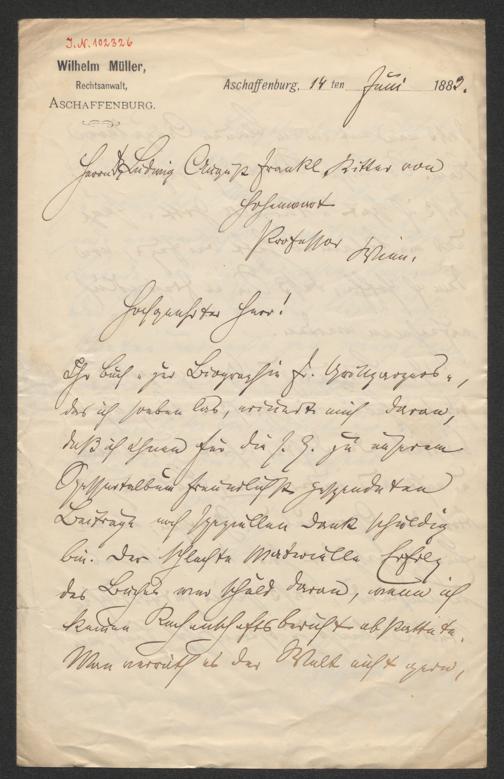 J.N. 102326
Wilhelm Müller,
Rechtsanwalt,
ASCHAFFENBURG.
Aschaffenburg, 14 ten Juni 1882.
Herrn Dr Ludwig August Frankl Ritter von
Hochwart
Professor Wien.
Hochgeehrter Herr!
Ihr Buch „zur Biographie F. Grillparzers“,
das ich soeben las, erinnert mich daran,
daß ich Ihnen für die s. Z. zu unserem
Spessartalbum freundlichst gespendeten
Beiträge noch speziellen Dank schuldig
bin. Der schlechte materielle Erfolg
des Buches war schuld daran, wenn ich
keinen Rechenschaftsbericht abstattete.
Man verräth es der Welt nicht gern,